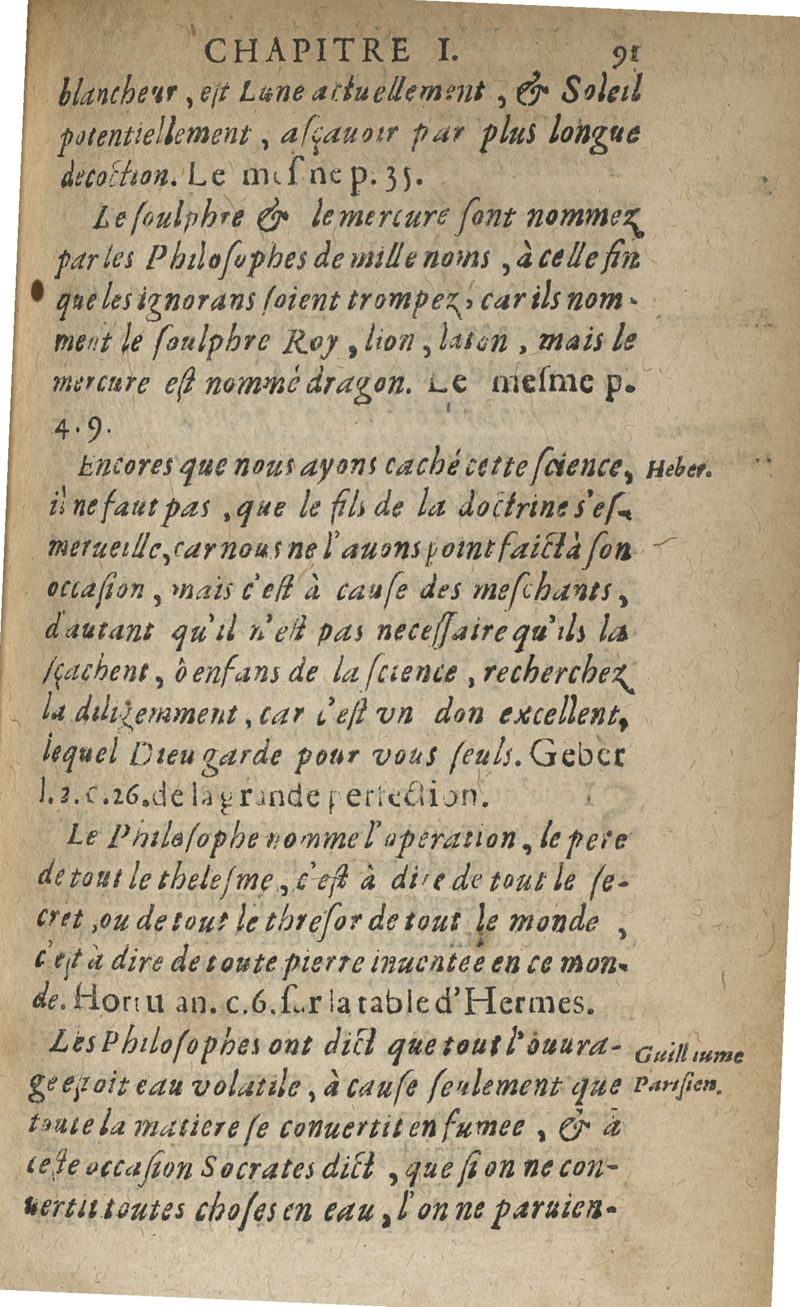 CHAPITRE I. 91
blancheur, est Lune actuellement, & Soleil
potentiellement, asçauoir par plus longue
decoction. Le mesme p. 35.
Le soulphre & le mercure sont nommez
par les Philosophes de mille noms, à celle fin
que les ignorans soient trompez, car ils nom-
ment le soulphre Roy, lion, laton, mais le
mercure est nommé dragon. Le mesme p.
4.9.
Encores que nous ayons caché cette science, Heber.
il ne faut pas, que le fils de la doctrine s'es-
merueille, car nous ne l'auons point faict à son
occasion, mais c'est à cause des meschants,
d'autant qu'il n'est pas necessaire qu'ils la
sçachent, ô enfans de la science, recherchez
la diligemment, car c'est vn don excellent,
lequel Dieu garde pour vous seuls. Geber
l.2.c.26. de la grande perfection.
Le Philosophe nomme l'operation, le pere
de tout le thelesme, c'est à dire de tout le se-
cret, ou de tout le thresor de tout le monde,
c'est à dire de toute pierre inuenteé en ce mon-
de. Hortulan. c.6. sur la table d'Hermes.
Les Philosophes ont dict que tout l'ouura- Guillaume
ge estoit eau volatile, à cause seulement que Parisien.
toute la matiere se conuertit en fumee, & à
ceste occasion Socrates dict, que si on ne con-
uertit toutes choses en eau, l'on ne paruien-